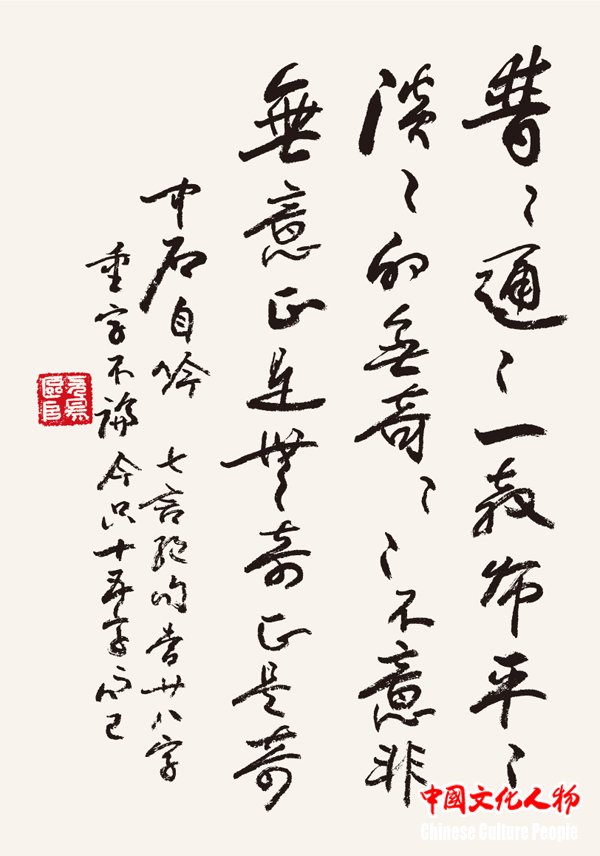 普〻通〻一教师平〻
淡〻的無奇〻〻不意非
無意正是無奇正是奇
中石自吟 七言絕句當廿八字
重字不今只十五字而已
中國文化人物
Chinese Culture People